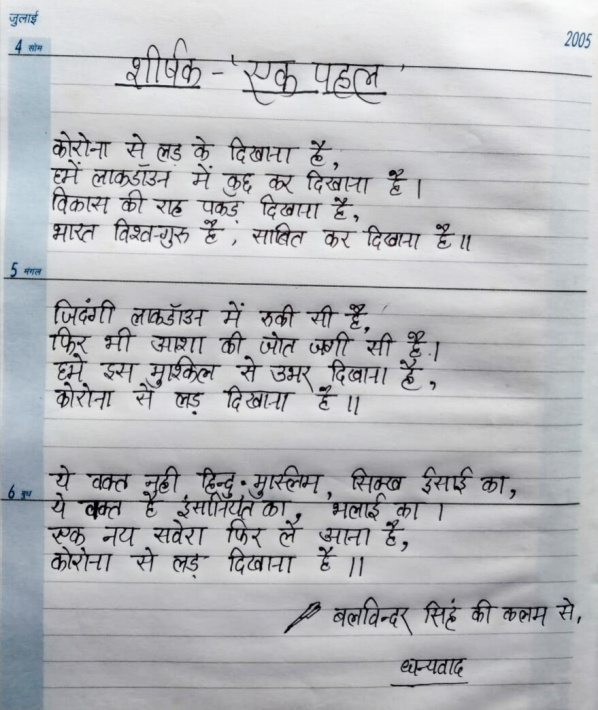 जुलाई
4 सोम
2005
शीर्षक - 'एक पहल'
कोरोना से लड़ के दिखाना है,
हमें लाकडॉउन में कुछ कर दिखाना है।
विकास की राह पकड़ दिखाना है,
भारत विश्व-गुरु है, साबित कर दिखाना है॥
5 मंगल
जिदंगी लाकडॉउन में रुकी सी है,
फिर भी आशा की जोत जगी सी है।
हमे इस मुश्किल से उभर दिखाना है,
कोरोना से लड़ दिखाना है॥
ये वक्त नही हिन्दु-मुस्लिम, सिक्ख ईसाई का,
6 बुध
ये वक्त है इंसानियत का, भलाई का।
एक नय सवेरा फिर ले आना है,
कोरोना से लड़ दिखाना है॥
बलविन्दर सिहं की कलम से,
धन्यवाद